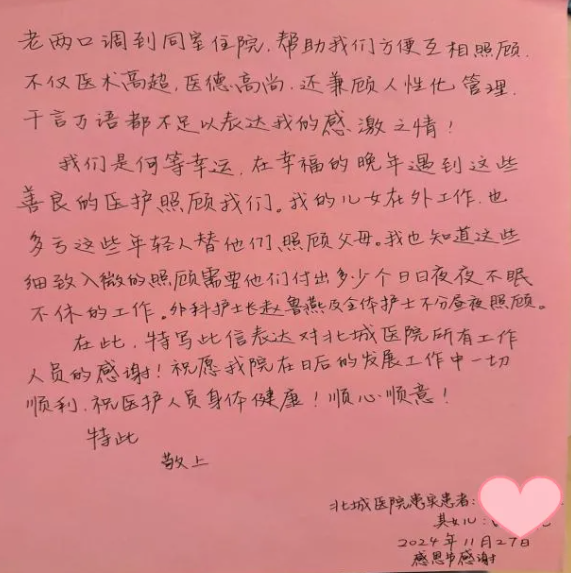 老两口调到同室住院,帮助我们方便互相照顾.
不仅医术高超,医德高尚.还兼顾人性化管理.
千言万语都不足以表达我的感激之情!
我们是何等幸运,在幸福的晚年遇到这些
善良的医护照顾我们。我的儿女在外工作,也
多亏这些年轻人替他们照顾父母。我也知道这些
细致入微的照顾需要他们付出多少个日日夜夜不眠
不休的工作。外科护士长赵鲁燕及全体护士不分昼夜照顾。
在此,特写此信表达对北城医院所有工作
人员的感谢!祝愿我院在日后的发展工作中一切
顺利,祝医护人员身体健康!顺心顺意!
特此
敬上
北城医院患者:
其女儿:
2024年11月27日
感恩节感谢